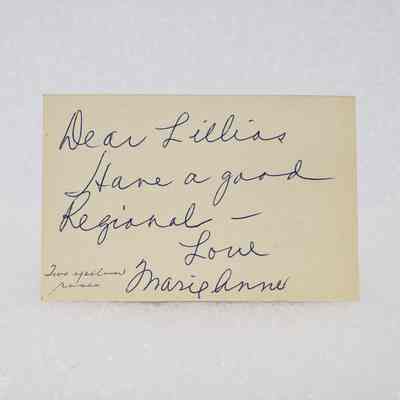 Dear Lillias
Have a good
Regional —
Love
Marie Anne
Two yellow
roses